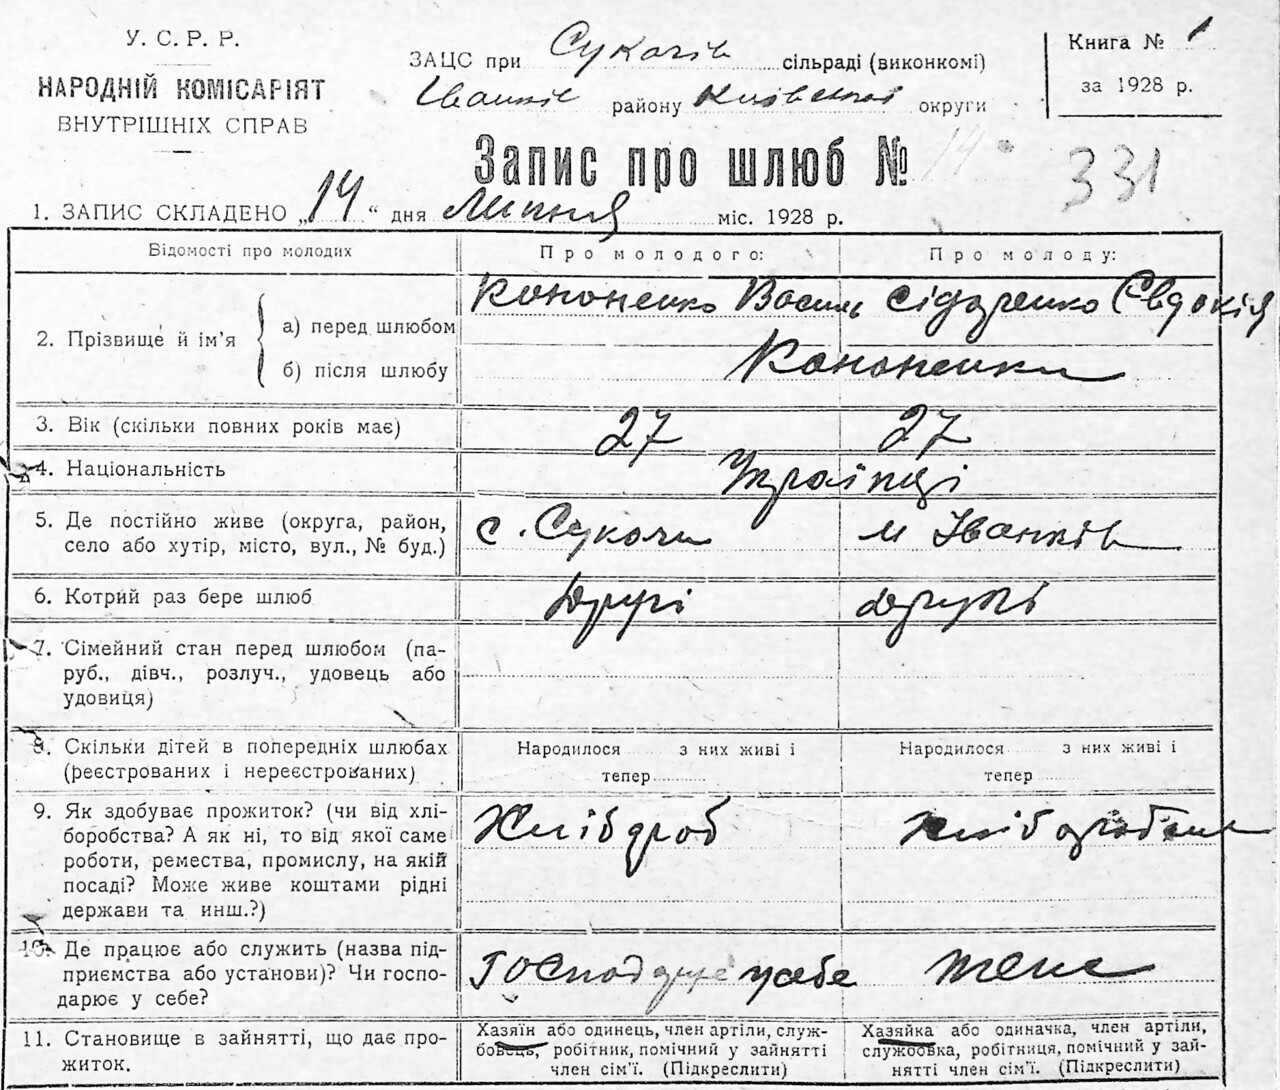 У. С. Р. Р.
НАРОДНІЙ КОМІСАРІЯТ
ВНУТРІШНІХ СПРАВ
ЗАЦС при Сукачів сільраді (виконкомі)
Іванків району Київської округи
Книга № 1
за 1928 р.
Запис про шлюб № 14
331
1. ЗАПИС СКЛАДЕНО „14“ дня Липня міс. 1928 р.
Відомості про молодих
Про молодого:
Про молоду:
2. Прізвище й ім'я
а) перед шлюбом
Кононенко Василь
Сідоренко Євдокія
б) після шлюбу
Кононенки
3. Вік (скільки повних років має)
27
27
4. Національність
Українці
5. Де постійно живе (округа, район,
село або хутір, місто, вул., № буд.)
с. Сукачи
м Іванків
6. Котрий раз бере шлюб
Другі
другі
7. Сімейний стан перед шлюбом (па-
руб., дівч., розлуч., удовець або
удовиця)
8. Скільки дітей в попередніх шлюбах
(реєстрованих і нереєстрованих)
Народилося з них живі і
тепер
Народилося з них живі і
тепер
9. Як здобуває прожиток? (чи від хлі-
боробства? А як ні, то від якої саме
роботи, ремества, промислу, на якій
посаді? Може живе коштами рідні
держави та инш.?)
Хлібороб
10. Де працює або служить (назва під-
приємства або установи)? Чи госпо-
дарює у себе?
Господарує у себе
теж
11. Становище в зайнятті, що дає про-
житок.
Хазяїн або одинець, член артіли, служ-
бовець, робітник, помічний у зайнятті
член сім'ї. (Підкреслити)
Хазяйка або одиначка, член артіли,
службовка, робітниця, помічний у зай-
нятті член сім'ї. (Підкреслити)